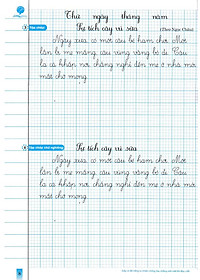 Thứ ngày tháng năm
3 Tập chép
Sự tích cây vú sữa
(Theo Ngọc Châu)
Ngày xưa, có một cậu bé ham chơi. Một
lần bị mẹ mắng, cậu vùng vằng bỏ đi. Cậu
la cà khắp nơi, chẳng nghĩ đến mẹ ở nhà mỏi
mắt chờ mong.
Sự tích cây vú sữa
Ngày xưa, có một cậu bé ham chơi. Một
lần bị mẹ mắng, cậu vùng vằng bỏ đi. Cậu
la cà khắp nơi, chẳng nghĩ đến mẹ ở nhà mỏi
mắt chờ mong.